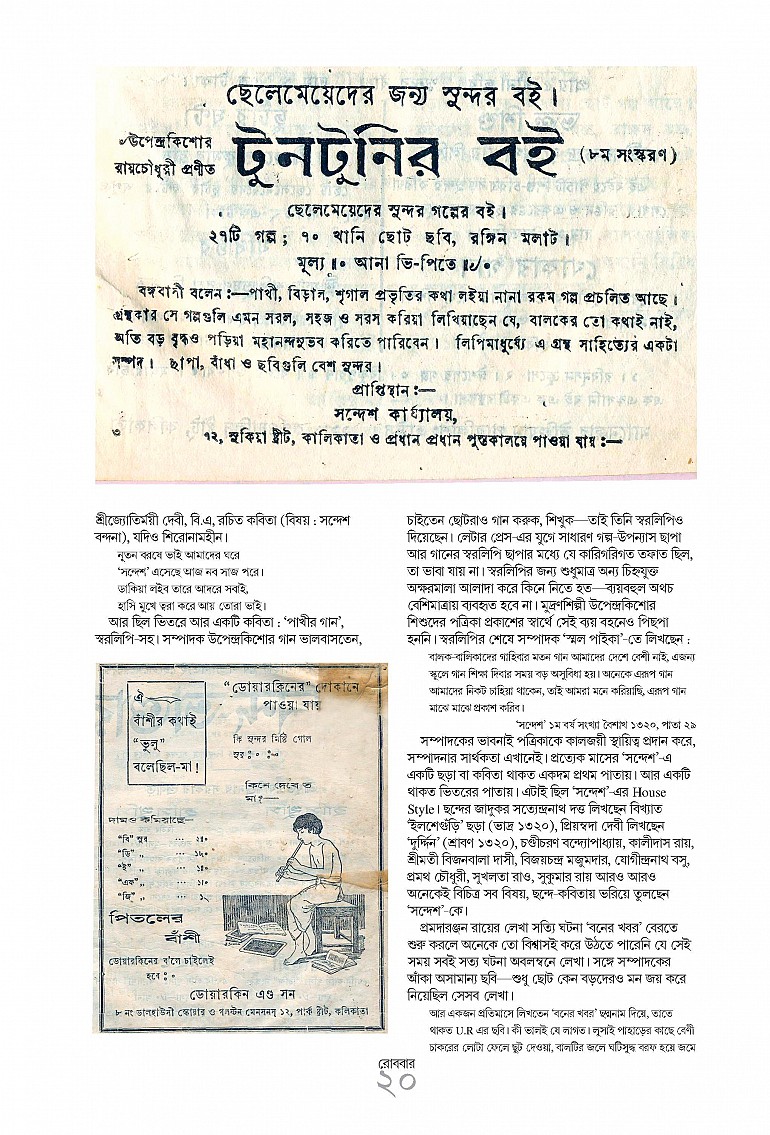 ছেলেমেয়েদের জন্য সুন্দর বই।
উপেন্দ্রকিশোর
রায়চৌধুরী প্রণীত
টুনটুনির বই
(৮ম সংস্করণ)
ছেলেমেয়েদের সুন্দর গল্পের বই।
২৭টি গল্প; ৭০ খানি ছোট ছবি, রঙ্গিন মলাট।
মূল্য ॥০ আনা ভি-পিতে ॥৵০
বঙ্গবাণী বলেন:—পাখী, বিড়াল, শৃগাল প্রভৃতির কথা লইয়া নানা রকম গল্প প্রচলিত আছে।
গ্রন্থকার সে গল্পগুলি এমন সরল, সহজ ও সরস করিয়া লিখিয়াছেন যে, বালকের তো কথাই নাই,
অতি বড় বৃদ্ধও পড়িয়া মহানন্দানুভব করিতে পারিবেন। লিপিমাধুর্য্যে এ গ্রন্থ সাহিত্যের একটা
সম্পদ। ছাপা, বাঁধা ও ছবিগুলি বেশ সুন্দর।
প্রাপ্তিস্থান:—
সন্দেশ কার্য্যালয়,
৩ ৭২, সুকিয়া ষ্ট্রীট, কালিকাতা ও প্রধান প্রধান পুস্তকালয়ে পাওয়া যায়:—
শ্রীজ্যোতির্ময়ী দেবী, বি.এ, রচিত কবিতা (বিষয় : সন্দেশ
বন্দনা), যদিও শিরোনামহীন।
নূতন বরষে ভাই আমাদের ঘরে
‘সন্দেশ’ এসেছে আজ নব সাজ পরে।
ডাকিয়া লইব তারে আদরে সবাই,
হাসি মুখে ত্বরা করে আয় তোরা ভাই।
আর ছিল ভিতরে আর একটি কবিতা : ‘পাখীর গান’,
স্বরলিপি-সহ। সম্পাদক উপেন্দ্রকিশোর গান ভালবাসতেন,
ঐ
বাঁশীর কথাই
“ভুলু”
বলেছিল-মা!
“ডোয়ারকিনের” দোকানে
পাওয়া যায়
কি সুন্দর মিষ্টি গোল
সুর
কিনে দেবে ত
মা?—
দামও কমিয়াছে—
“বি” সুর ... ২৷০
“ডি” „ ...
“ই” „ ...
“এফ” „ ...
“জি” „ ... ১৲
পিতলের
বাঁশী
ডোয়ারকিনের ব’লে চাইলেই
হবে
ডোয়ারকিন এণ্ড সন
৮ নং ডালহাউসী স্কোয়ার ও ওলষ্টন মেনসনস্ ১২, পার্ক ষ্ট্রীট, কলিকাতা
চাইতেন ছোটরাও গান করুক, শিখুক—তাই তিনি স্বরলিপিও
দিয়েছেন। লেটার প্রেস-এর যুগে সাধারণ গল্প-উপন্যাস ছাপা
আর গানের স্বরলিপি ছাপার মধ্যে যে কারিগরিগত তফাত ছিল,
তা ভাবা যায় না। স্বরলিপির জন্য শুধুমাত্র অন্য চিহ্নযুক্ত
অক্ষরমালা আলাদা করে কিনে নিতে হত—ব্যয়বহুল অথচ
বেশিমাত্রায় ব্যবহৃত হবে না। মুদ্রণশিল্পী উপেন্দ্রকিশোর
শিশুদের পত্রিকা প্রকাশের স্বার্থে সেই ব্যয় বহনেও পিছপা
হননি। স্বরলিপির শেষে সম্পাদক ‘স্মল পাইকা’-তে লিখছেন :
বালক-বালিকাদের গাহিবার মতন গান আমাদের দেশে বেশী নাই, এজন্য
স্কুলে গান শিক্ষা দিবার সময় বড় অসুবিধা হয়। অনেকে এরূপ গান
আমাদের নিকট চাহিয়া থাকেন, তাই আমরা মনে করিয়াছি, এরূপ গান
মাঝে মাঝে প্রকাশ করিব।
‘সন্দেশ’ ১ম বর্ষ সংখ্যা বৈশাখ ১৩২০, পাতা ২৯
সম্পাদকের ভাবনাই পত্রিকাকে কালজয়ী স্থায়িত্ব প্রদান করে,
সম্পাদনার সার্থকতা এখানেই। প্রত্যেক মাসের ‘সন্দেশ’-এ
একটি ছড়া বা কবিতা থাকত একদম প্রথম পাতায়। আর একটি
থাকত ভিতরের পাতায়। এটাই ছিল ‘সন্দেশ’-এর House
Style। ছন্দের জাদুকর সত্যেন্দ্রনাথ দত্ত লিখছেন বিখ্যাত
‘ইলশেগুঁড়ি’ ছড়া (ভাদ্র ১৩২০), প্রিয়ম্বদা দেবী লিখছেন
‘দুর্দ্দিন’ (শ্রাবণ ১৩২০), চণ্ডীচরণ বন্দ্যোপাধ্যায়, কালীদাস রায়,
শ্রীমতী বিজনবালা দাসী, বিজয়চন্দ্র মজুমদার, যোগীন্দ্রনাথ বসু,
প্রমথ চৌধুরী, সুখলতা রাও, সুকুমার রায় আরও আরও
অনেকেই বিচিত্র সব বিষয়, ছন্দে-কবিতায় ভরিয়ে তুলছেন
‘সন্দেশ’-কে।
প্রমদারঞ্জন রায়ের লেখা সত্যি ঘটনা ‘বনের খবর’ বেরতে
শুরু করলে অনেকে তো বিশ্বাসই করে উঠতে পারেনি যে সেই
সময় সবই সত্য ঘটনা অবলম্বনে লেখা। সঙ্গে সম্পাদকের
আঁকা অসামান্য ছবি—শুধু ছোট কেন বড়দেরও মন জয় করে
নিয়েছিল সেসব লেখা।
আর একজন প্রতিমাসে লিখতেন ‘বনের খবর’ ছদ্মনাম দিয়ে, তাতে
থাকত U.R এর ছবি। কী ভালই যে লাগত। লুসাই পাহাড়ের কাছে বেণী
চাকরের লোটা ফেলে ছুট দেওয়া, বালটির জলে ঘটিসুদ্ধ বরফ হয়ে জমে
রোববার
২০